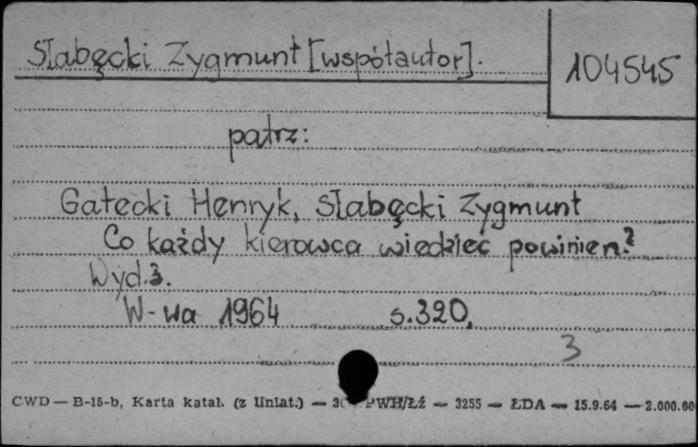 Słabęcki Zygmunt [współautor].
104545
patrz:
Gałecki Henryk, Słabęcki Zygmunt
Co każdy kierowca wiedzieć powinien?
Wyd. 3.
W-wa 1964 s. 320,
3
CWD — B-15-b, Karta katal. (z liniat.) — PWH/Łź — 3255 — ŁDA — 15.9.64 — 2.000.00